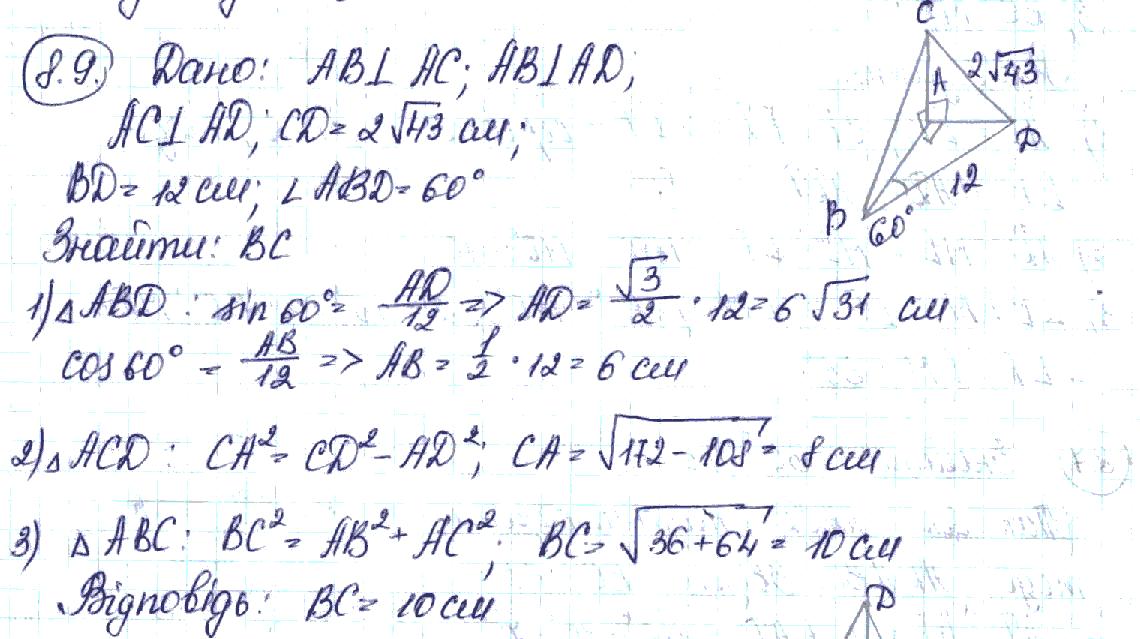 8.9. Дано: AB⊥ AC; AB⊥AD;
AC⊥ AD; CD= 2√43 см;
BD= 12 см; ∠ ABD= 60°
Знайти: BC
1) △ ABD : sin 60°= AD/12 => AD= √3/2 · 12= 6 √31 см
cos 60° = AB/12 => AB = 1/2 · 12= 6 см
2) △ ACD : CA²= CD² - AD²; CA = √172 - 108 = 8 см
3) △ ABC: BC² = AB² + AC²; BC= √36+64 = 10 см
Відповідь: BC= 10 см
C
2√43
A
D
12
B
60°
D